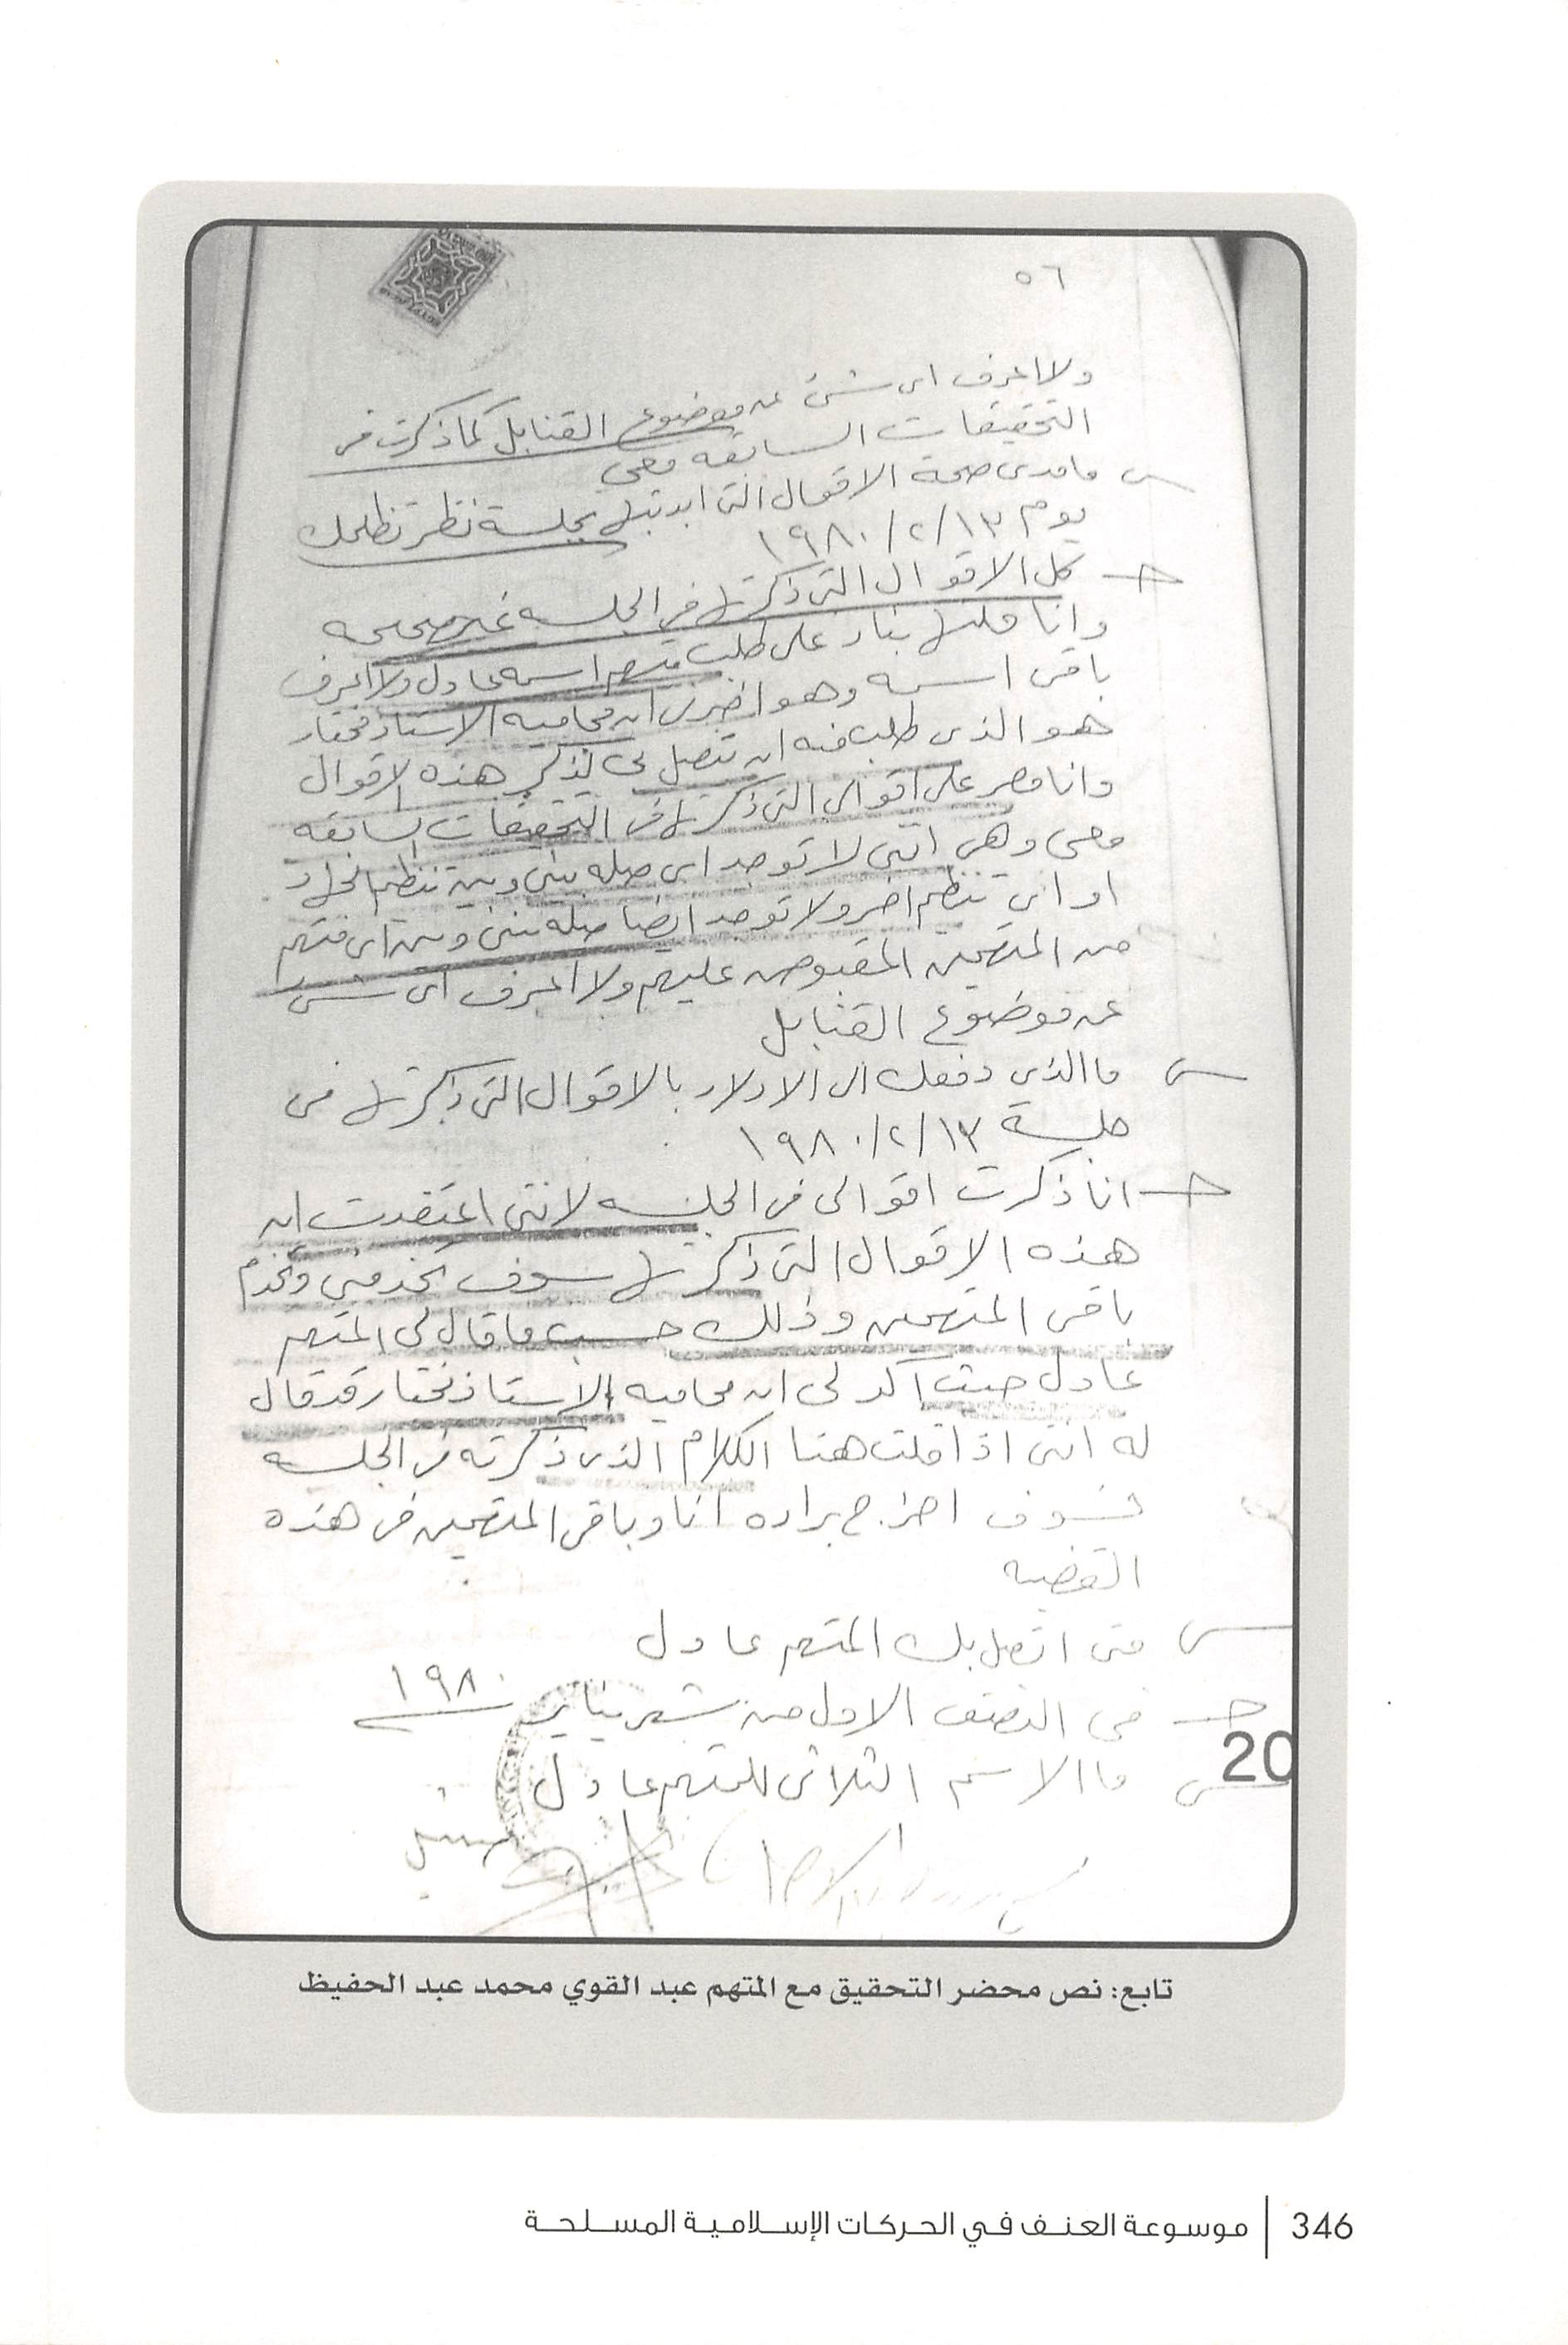 ٥٦
ولا اعرف اى شئ عن موضوع القنابل كما ذكرت فى
التحقيقات السابقه معى
س ما مدى صحة الاقوال التى ابديتها بجلسة نظر تظلمك
يوم ١٩٨٠/٢/١٣
ج كل الاقوال التى ذكرتها فى الجلسه غير صحيحه
وانا قلتها بناء على طلب متهم اسمه عادل ولا اعرف
باقى اسمه وهو اخبرنى ان محاميه الاستاذ مختار
هو الذى طلب منه ان يتصل بى لذكر هذه الاقوال
وانا مصر على اقوالى التى ذكرتها فى التحقيقات السابقه
معى وهى اننى لا توجد اى صله بينى وبين تنظيم الجهاد
او اى تنظيم اخر ولا توجد ايضا صله بينى وبين اى متهم
من المتهمين المقبوض عليهم ولا اعرف اى شئ
عن موضوع القنابل
س ما الذى دفعك الى الادلاء بالاقوال التى ذكرتها فى
جلسة ١٩٨٠/٢/١٣
ج انا ذكرت اقوالى فى الجلسه لاننى اعتقدت ان
هذه الاقوال التى ذكرتها سوف تخدمنى وتخدم
باقى المتهمين وذلك حسب ما قال لى المتهم
عادل حيث اكد لى ان محاميه الاستاذ مختار قد قال
له اننى اذا قلت هذا الكلام الذى ذكرته فى الجلسه
فسوف اخرج براءه انا وباقى المتهمين فى هذه
القضيه
س متى اتصل بك المتهم عادل
ج فى النصف الاول من شهر يناير ١٩٨٠
20
س ما الاسم الثلاثى للمتهم عادل
تابع: نص محضر التحقيق مع المتهم عبد القوي محمد عبد الحفيظ
346 | موسوعة العنف في الحركات الإسلامية المسلحة